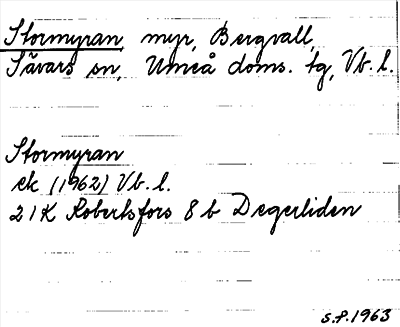 Stormyran, myr, Bergvall,
Sävars sn, Umeå doms. tg, Vb. l.
Stormyran
ek. (1962) Vb. l.
21K Robertsfors 8 b Degerliden
S.P. 1963